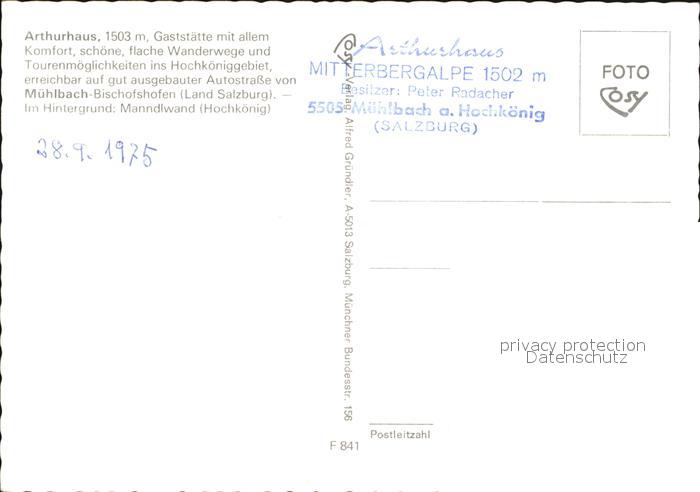 Arthurhaus, 1503 m, Gaststätte mit allem
Komfort, schöne, flache Wanderwege und
Tourenmöglichkeiten ins Hochköniggebiet,
erreichbar auf gut ausgebauter Autostraße von
Mühlbach-Bischofshofen (Land Salzburg). —
Im Hintergrund: Manndlwand (Hochkönig)
28.9. 1975
Cosy-Verlag Alfred Gründler, A-5013 Salzburg, Münchner Bundesstr. 156
Arthurhaus
MITTERBERGALPE 1502 m
Besitzer: Peter Radacher
5505 Mühlbach a. Hochkönig
(SALZBURG)
FOTO
Cosy
privacy protection
Datenschutz
Postleitzahl
F 841